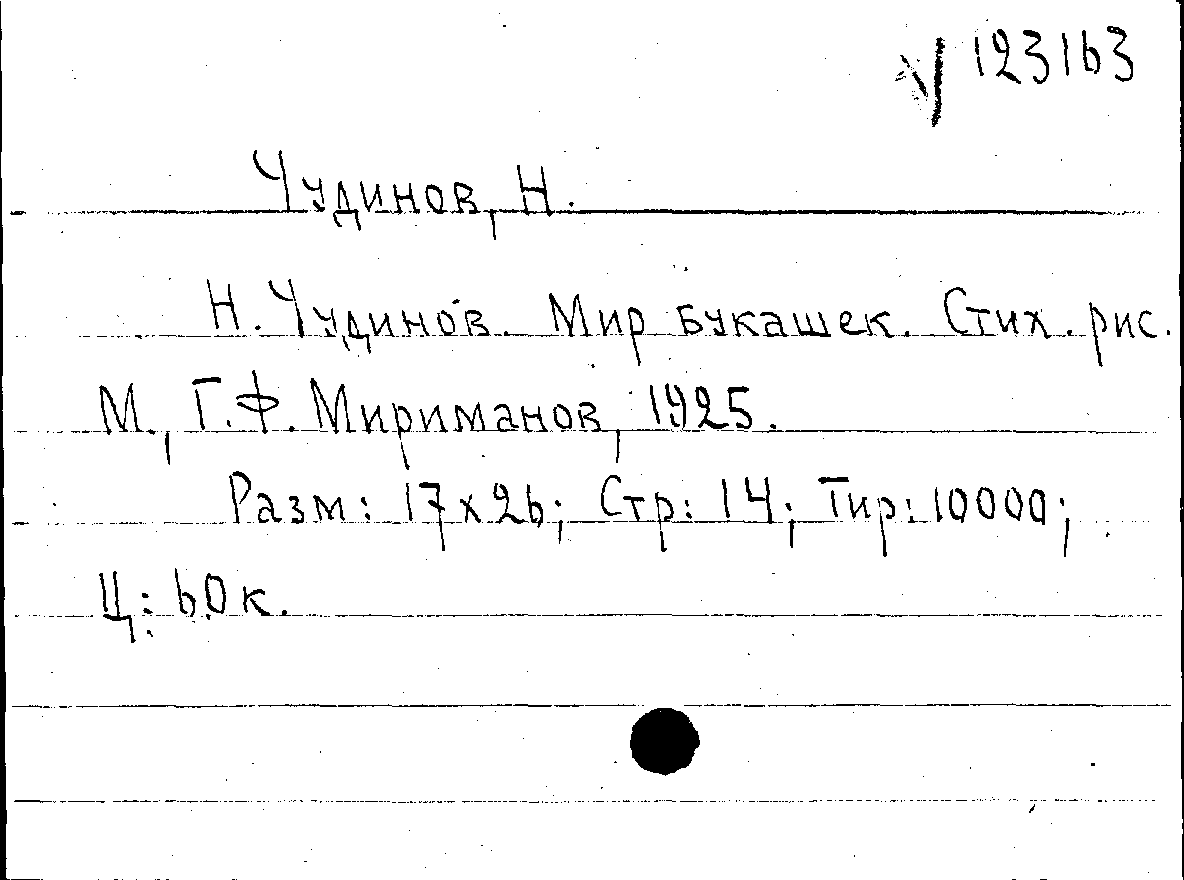 √ 123163
Чудинов, Н.
Н. Чудинов. Мир букашек. Стих. рис.
М., Г.Ф. Мириманов, 1925.
Разм: 17х26; Стр: 14; Тир: 10000;
Ц: 60к.